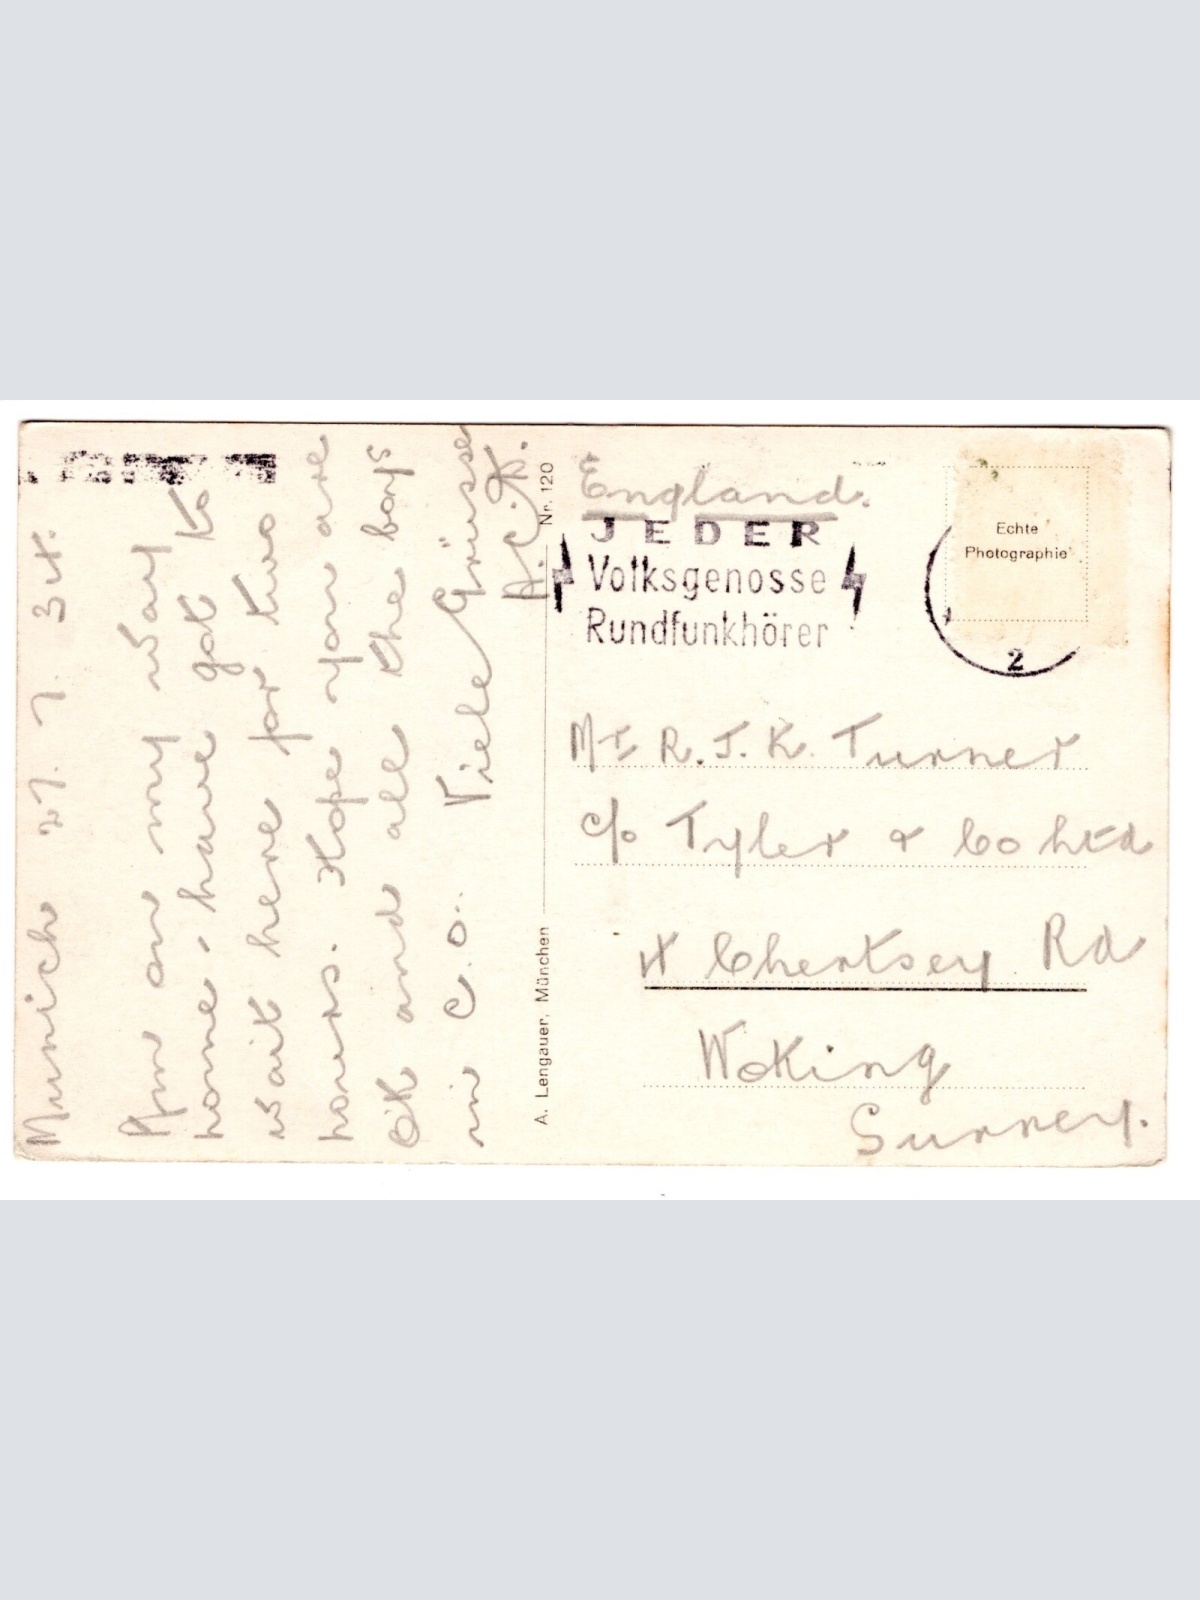 Munich 27. 7. 34.
Am on my way
home. have got to
wait here for two
hours. Hope you are
OK and all the boys
in C.O. Viele Grüsse
A.C.K.
A. Lengauer, München Nr. 120
England.
JEDER
Volksgenosse
Rundfunkhörer
Echte
Photographie
2
Mr R. J. K. Turner
c/o Tyler & Co Ltd
Chertsey Rd
Woking
Surrey.